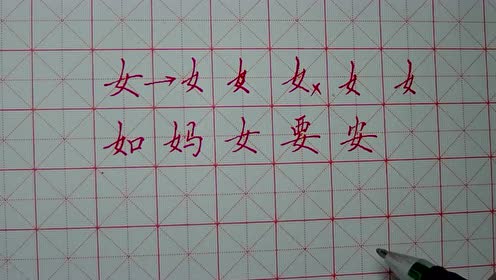 女→女 女 女× 女 女
如 妈 女 要 安